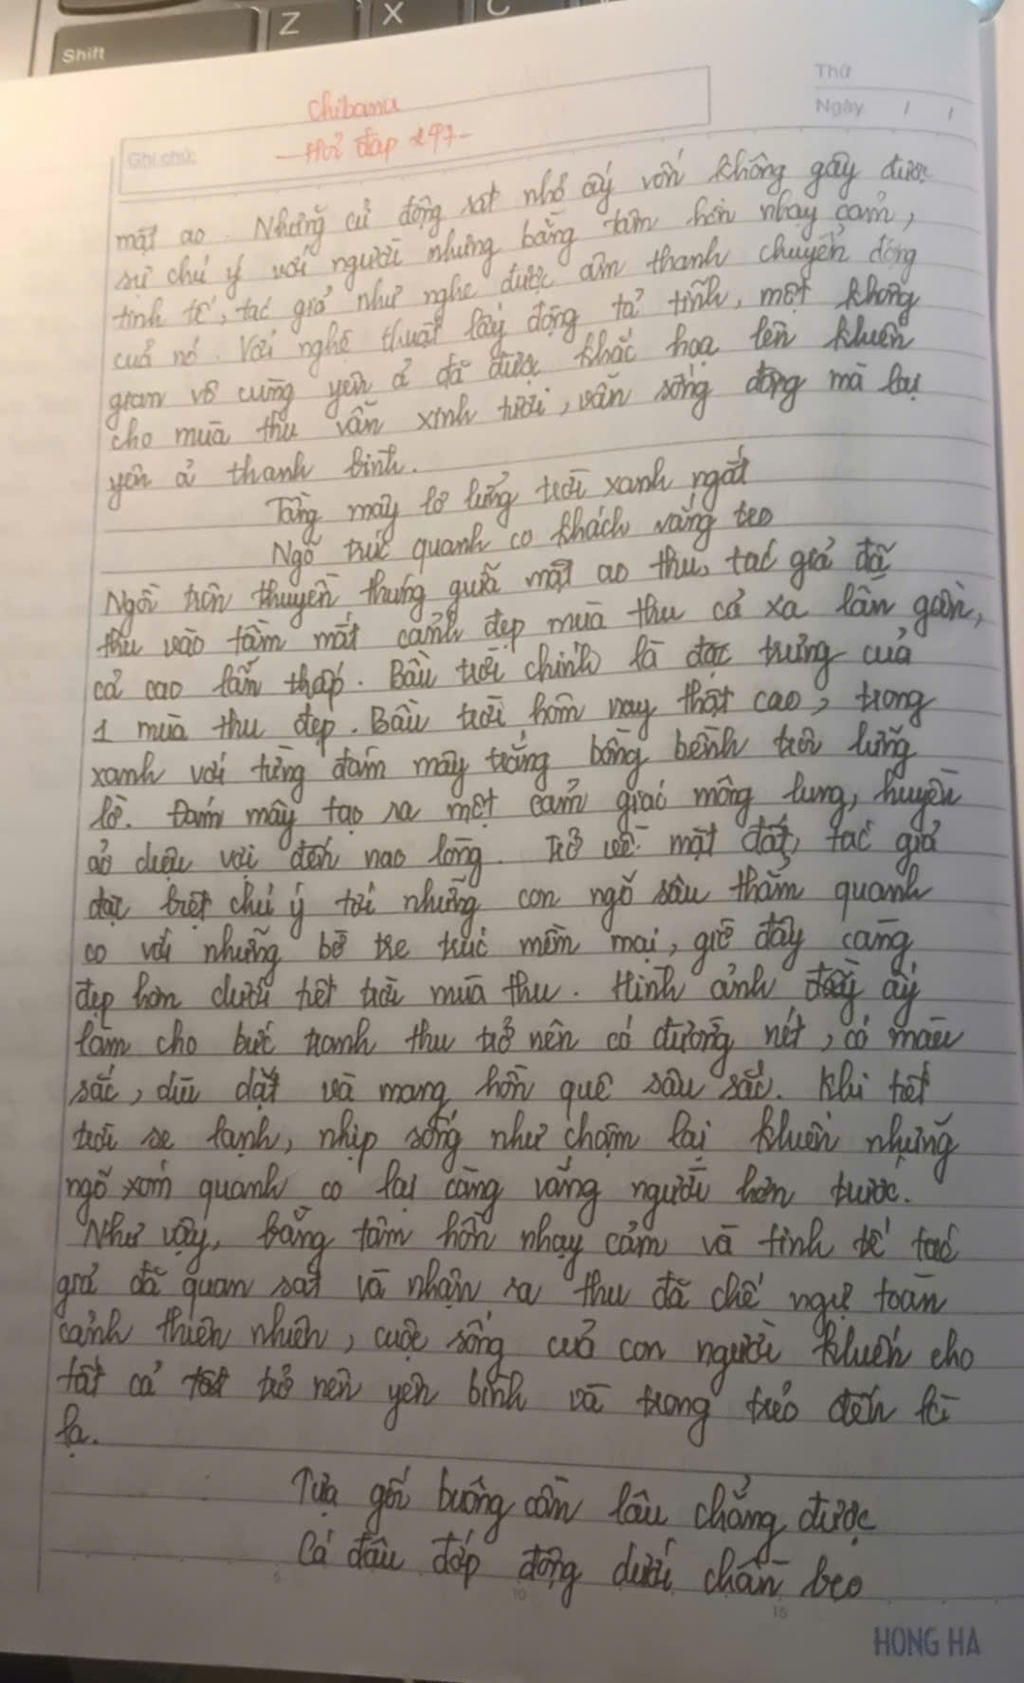 Shift
Z
X
C
Thứ
Ngày / /
Ghi chú:
Chibana
- Hỏi đáp 247 -
mặt ao. Những cử động rất nhỏ ấy vốn không gây được
sự chú ý với người nhưng bằng tâm hồn nhạy cảm,
tinh tế, tác giả như nghe được âm thanh chuyển động
của nó. Với nghệ thuật lấy động tả tĩnh, một không
gian vô cùng yên ả đã được khắc hoạ lên khiến
cho mùa thu vẫn xinh tươi, vẫn sống động mà lại
yên ả thanh bình.
Tầng mây lơ lửng trời xanh ngắt
Ngõ trúc quanh co khách vắng teo
Ngồi trên thuyền thưng giữa mặt ao thu, tác giả đã
thu vào tầm mắt cảnh đẹp mùa thu cả xa lẫn gần,
cả cao lẫn thấp. Bầu trời chính là đặc trưng của
1 mùa thu đẹp. Bầu trời hôm nay thật cao, trong
xanh với từng đám mây trắng bồng bềnh trôi lững
lờ. Đám mây tạo ra một cảm giác mông lung, huyền
ảo diệu vợi đến nao lòng. Trở về mặt đất, tác giả
đặc biệt chú ý tới những con ngõ sâu thẳm quanh
co với những bờ tre trúc mềm mại, giờ đây càng
đẹp hơn dưới tiết trời mùa thu. Hình ảnh ấy
làm cho bức tranh thu trở nên có đường nét, có màu
sắc, dìu dặt và mang hồn quê sâu sắc. Khi tiết
trời se lạnh, nhịp sống như chậm lại khiến những
ngõ xóm quanh co lại càng vắng người hơn trước.
Như vậy, bằng tâm hồn nhạy cảm và tinh tế tác
giả đã quan sát và nhận ra thu đã chế ngự toàn
cảnh thiên nhiên, cuộc sống của con người khiến cho
tất cả trở nên yên bình và trong trẻo đến kì
lạ.
Tựa gối buông cần lâu chẳng được
Cá đâu đớp động dưới chân bèo
5
10
15
HONG HA